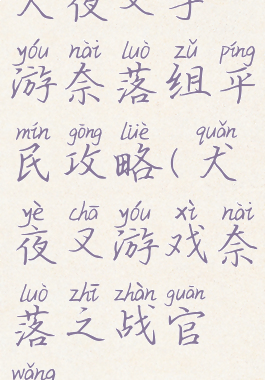 犬夜叉手
yóu nài luò zǔ píng
游奈落组平
mín gōng lüè quǎn
民攻略(犬
yè chā yóu xì nài
夜叉游戏奈
luò zhī zhàn guān
落之战官
wǎng